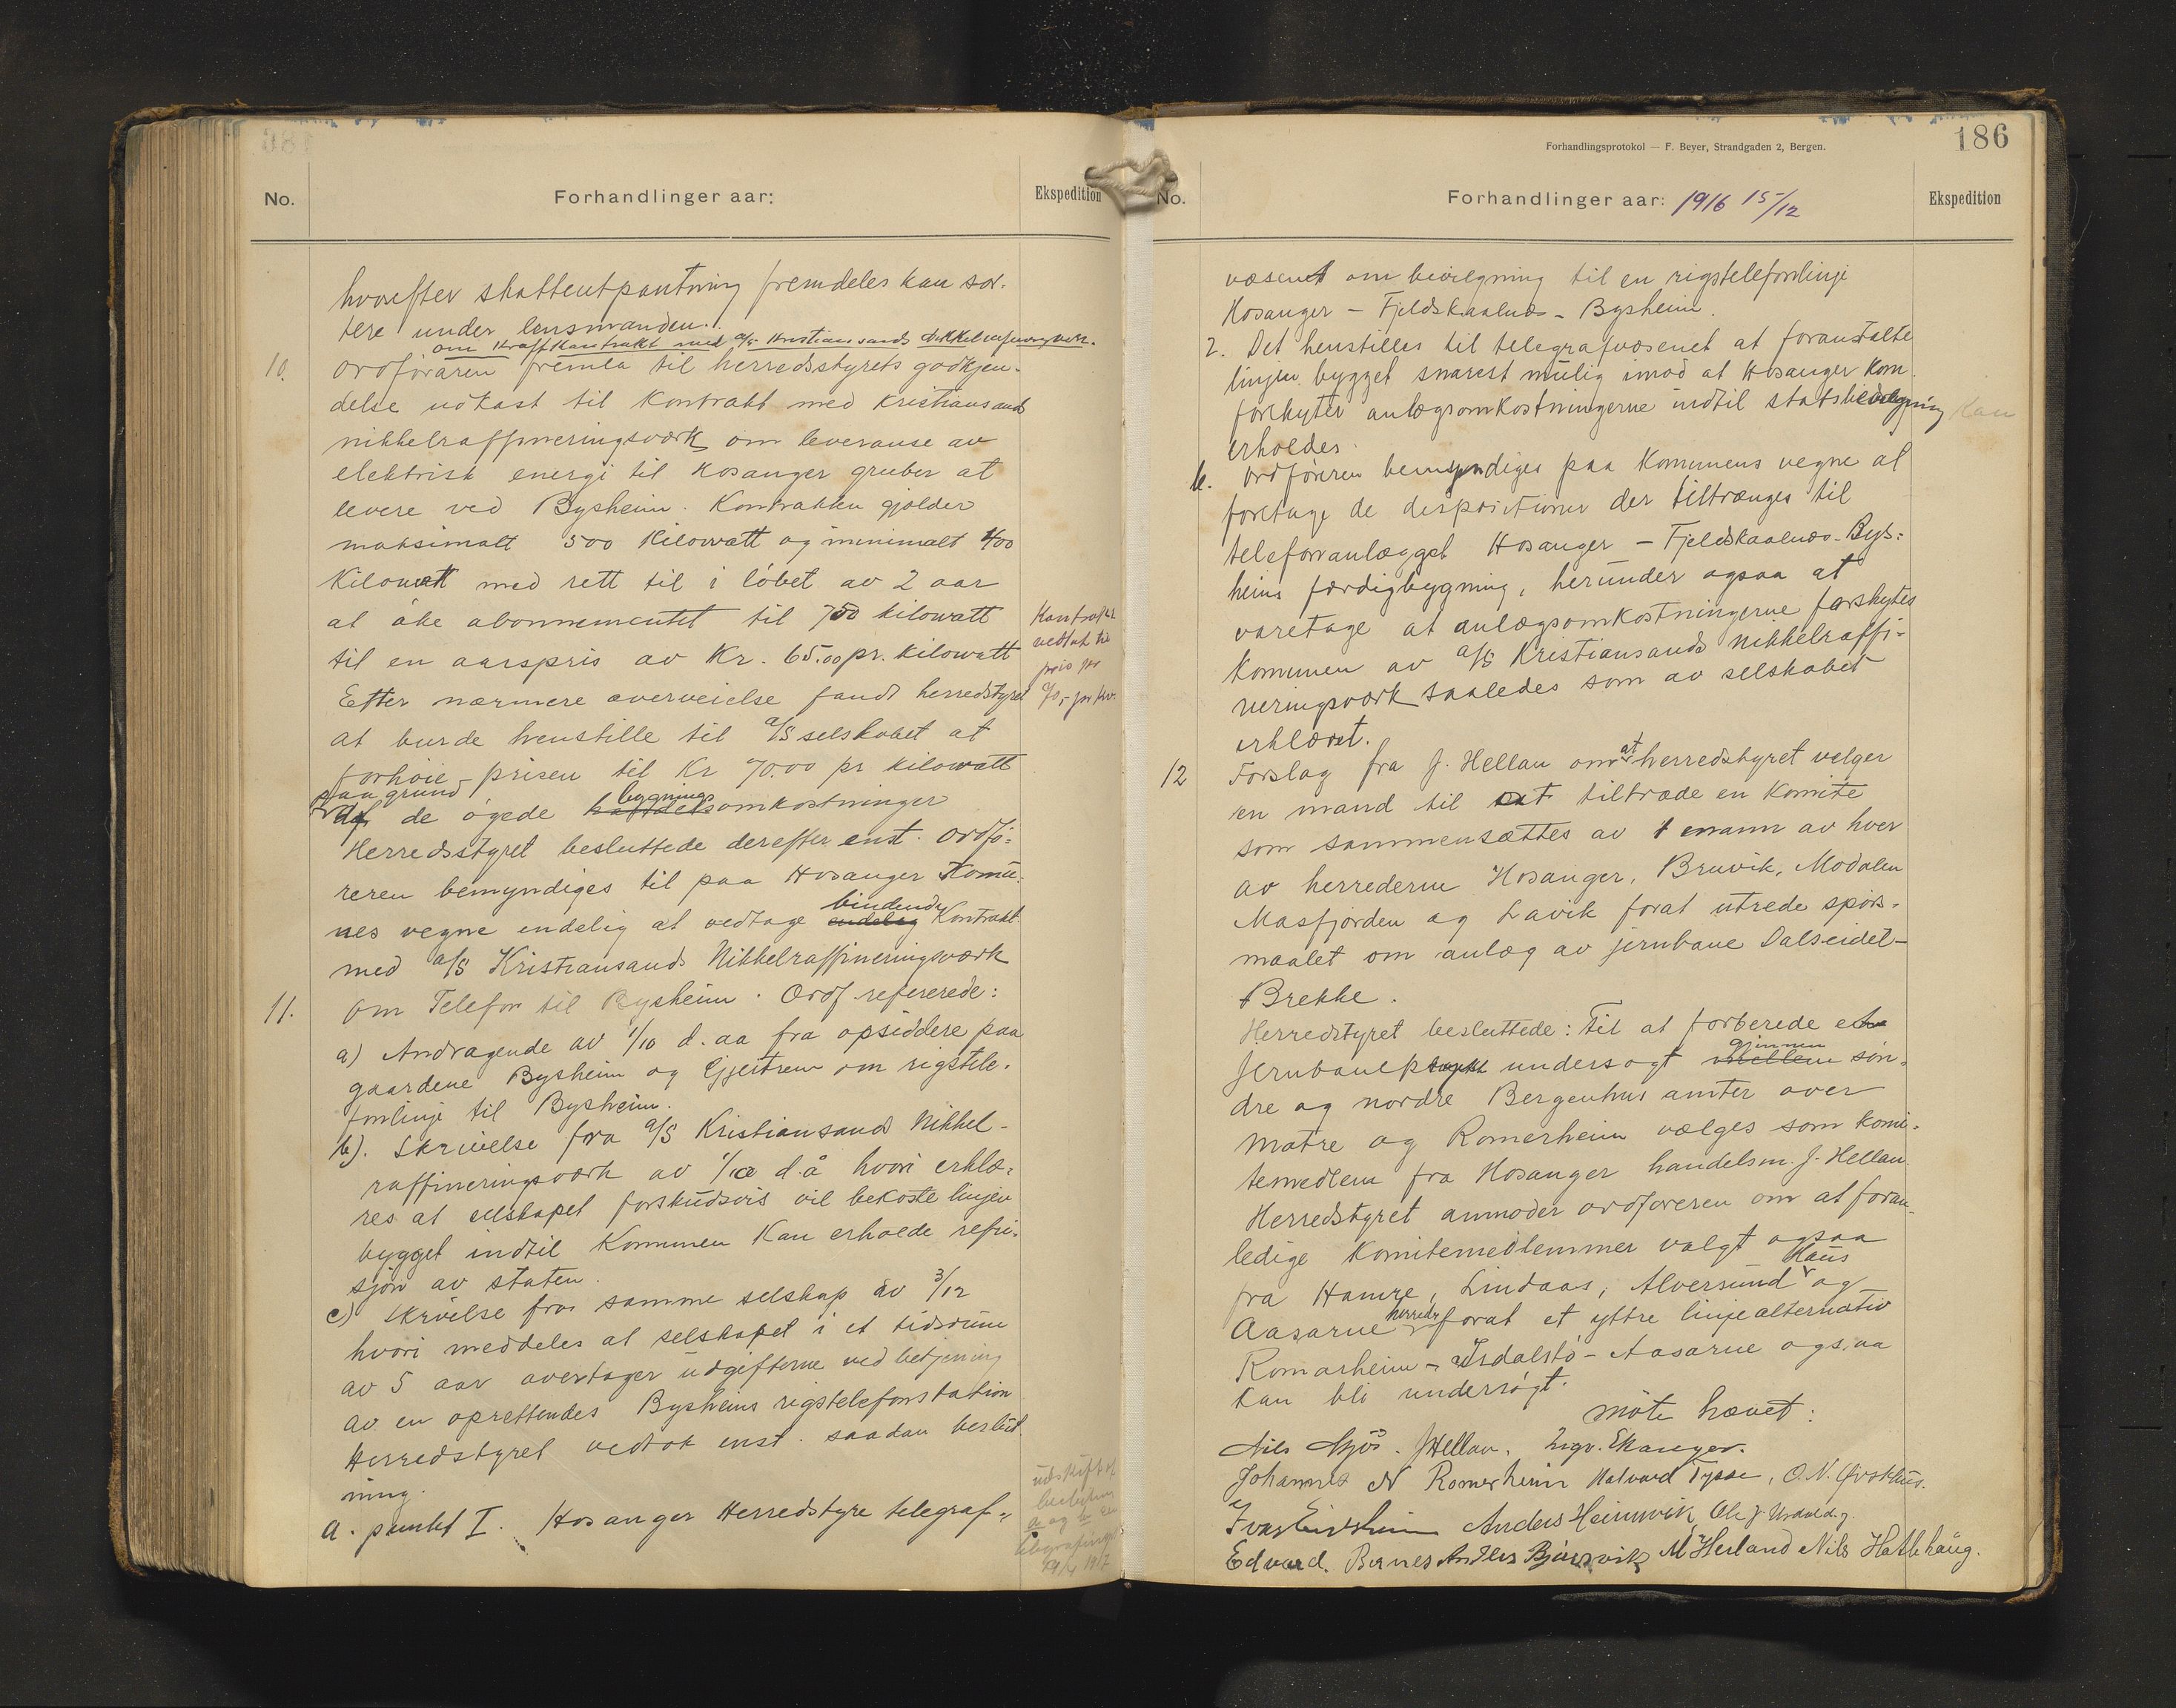 No.
Forhandlinger aar:
Ekspedition
hvorefter skatteutpantning fremdeles kan sor-
tere under lensmanden.
om Kraftkontrakt med a/s Kristiansands Nikkelrafineringsverk.
10.
Ordføraren fremla til herredsstyrets godkjen-
delse utkast til Kontrakt med Kristiansands
nikkelraffineringsværk om leveranse av
elektrisk energi til Hosanger gruber at
levere ved Bysheim. Kontrakten gjælder
maksimalt 500 Kilowatt og minimalt 400
Kilowatt med rett til i løbet av 2 aar
at øke abonnementet til 750 kilowatt
til en aarspris av Kr. 65.00 pr. kilowatt
Kontrakt
vedtat til
pris pr
70,- pr kw.
Efter nærmere overveielse fandt herredstyret
at burde henstille til a/s selskabet at
forhøie prisen til Kr 70.00 pr kilowatt
paa grund
af de øgede bygningsomkostninger
Herredsstyret besluttede derefter enst. Ordfø-
reren bemyndiges til paa Hosanger Komu-
nes vegne endelig at vedtage endelig bindende Kontrakt
med a/s Kristiansands Nikkelraffineringsværk
11.
Om Telefon til Bysheim. Ordf refererede:
a) Andragende av 1/10 d. aa fra opsiddere paa
gaardene Bysheim og Gjeitrem om rigstele-
fonlinje til Bysheim.
b). Skrivelse fra a/s Kristiansands Nikkel-
raffineringsværk av 1/10 d.å hvori erklæ-
res at selskapet forskudsvis vil bekoste linjen
bygget indtil Kommunen Kan erholde refu-
sjon av staten.
c) Skrivelse fra samme selskap av 3/12
hvori meddeles at selskapet i et tidsrum
av 5 aar overtager udgifterne ved betjening
av en oprettendes Bysheims rigstelefonstation
Herredstyret vedtok enst. saadan beslut-
ning.
a. punkt I. Hosanger Herredstyre telegraf-
utskrift af
beslutning
a og b
29/4 1917
Forhandlingsprotokol — F. Beyer, Strandgaden 2, Bergen.
186
No.
Forhandlinger aar: 1916 15/12
Ekspedition
væsenet om bevilgning til en rigstelefonlinje
Hosanger - Fjeldskaalnæs - Bysheim.
2. Det henstilles til telegrafvæsenet at foranstalte
linjen bygget snarest mulig imod at Hosanger Kom.
forskyter anlægsomkostningerne indtil statsbevilgning kan
erholdes.
b. Ordføreren bemyndiges paa Kommunens vegne at
foretage de dispositioner der tiltrænges til
telefonanlægget Hosanger - Fjeldskaalnæs - Bys-
heims færdigbygning, herunder ogsaa at
varetage at anlægsomkostningerne forskytes
Kommunen av a/s Kristiansands Nikkelraffi-
neringsværk saaledes som av selskabet
erklæret.
12
Forslag fra J. Hellan om at herredstyret velger
en mand til at tiltræde en Komite
som sammensættes av 1 mann av hver
av herrederne Hosanger, Bruvik, Modalen
Masfjorden og Lavik forat utrede spørs-
maalet om anlæg av jernbane Dalseidet-
Brekke.
Herredstyret besluttede: Til at forberede et
Jernbaneprosjekt undersøgt mellem gjennem søn-
dre og nordre Bergenhus amter over
Matre og Romerheim vælges som komi-
temedlem fra Hosanger handelsm. J. Hellan.
Herredstyret anmoder ordføreren om at foran-
ledige Komitemedlemmer valgt ogsaa
fra Hamre, Lindaas, Alversund Haus og
Aasarne herreder forat et yttre linjealternativ
Romarheim - Isdalstø - Aasarne ogsaa
kan bli undersøgt.
møte hævet:
Nils Mjøs. JHellan. Ingv. Ekanger.
Johannes N Romerheim Halvard Tysse, O.N. Øvsthus.
Ivar Eidsheim Anders Heimvik Ole J
Edvard. Bernes Anders Bjørsvik M Herland Nils Hatlehaug.